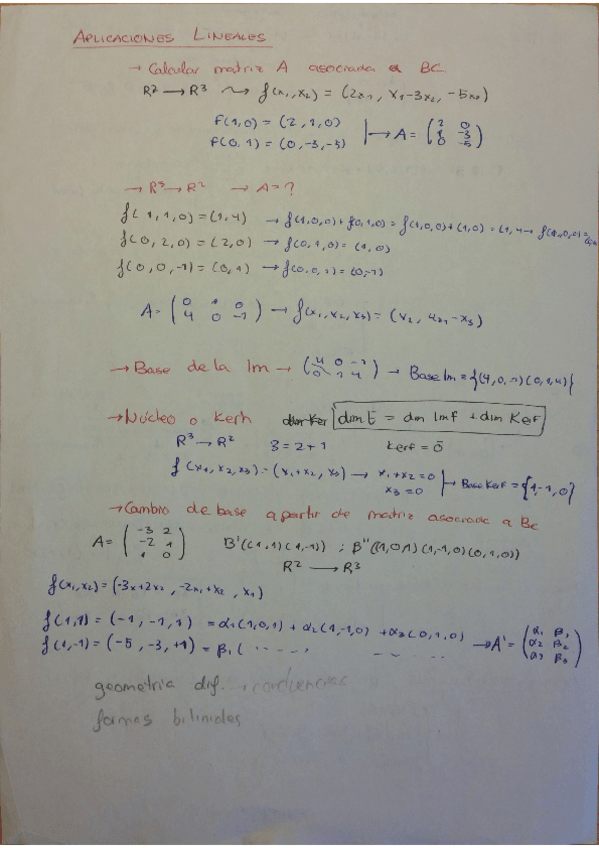 APLICACIONES LINEALES
→ Calcular matriz A asociada a BC
R² → R³ ⇝ f(x₁,x₂) = (2x₁, x₁-3x₂, -5x₂)
f(1,0) = (2,1,0)
f(0,1) = (0,-3,-5) |→ A = (2 0
1 -3
0 -5)
→ R³ → R² → A = ?
f(1,1,0) = (1,4) → f(1,0,0) + f(0,1,0) = f(1,0,0) + (1,0) = (1,4 → f(1,0,0) =
f(0,2,0) = (2,0) → f(0,1,0) = (1,0)
f(0,0,-1) = (0,1) → f(0,0,1) = (0,-1)
A = (0 1 0
4 0 -1) → f(x₁,x₂,x₃) = (x₂, 4x₁-x₃)
→ Base de la Im → (4 0 -1
0 1 4) → Base Im = {(4,0,-1)(0,1,4)}
→ Núcleo o Kerh dim Ker dim E = dim Imf + dim Kerf
R³ → R² 3 = 2+1 Kerf = 0̄
f(x₁,x₂,x₃) = (x₁+x₂, x₃) → x₁+x₂=0
x₃=0 |→ Base Kerf = {1,-1,0}
→ Cambio de base a partir de matriz asociada a Bc
A = (-3 2
-2 1
1 0) B'(1,1)(1,-1)) ; B''((1,0,1)(1,-1,0)(0,1,0))
R² → R³
f(x₁,x₂) = (-3x+2x₂, -2x₁+x₂, x₁)
f(1,1) = (-1,-1,1) = α₁(1,0,1) + α₂(1,-1,0) + α₃(0,1,0)
f(1,-1) = (-5,-3,+1) = β₁( ..... ..... → A' = (α₁ β₁
α₂ β₂
α₃ β₃)
geometria dif. →
formas bilinides